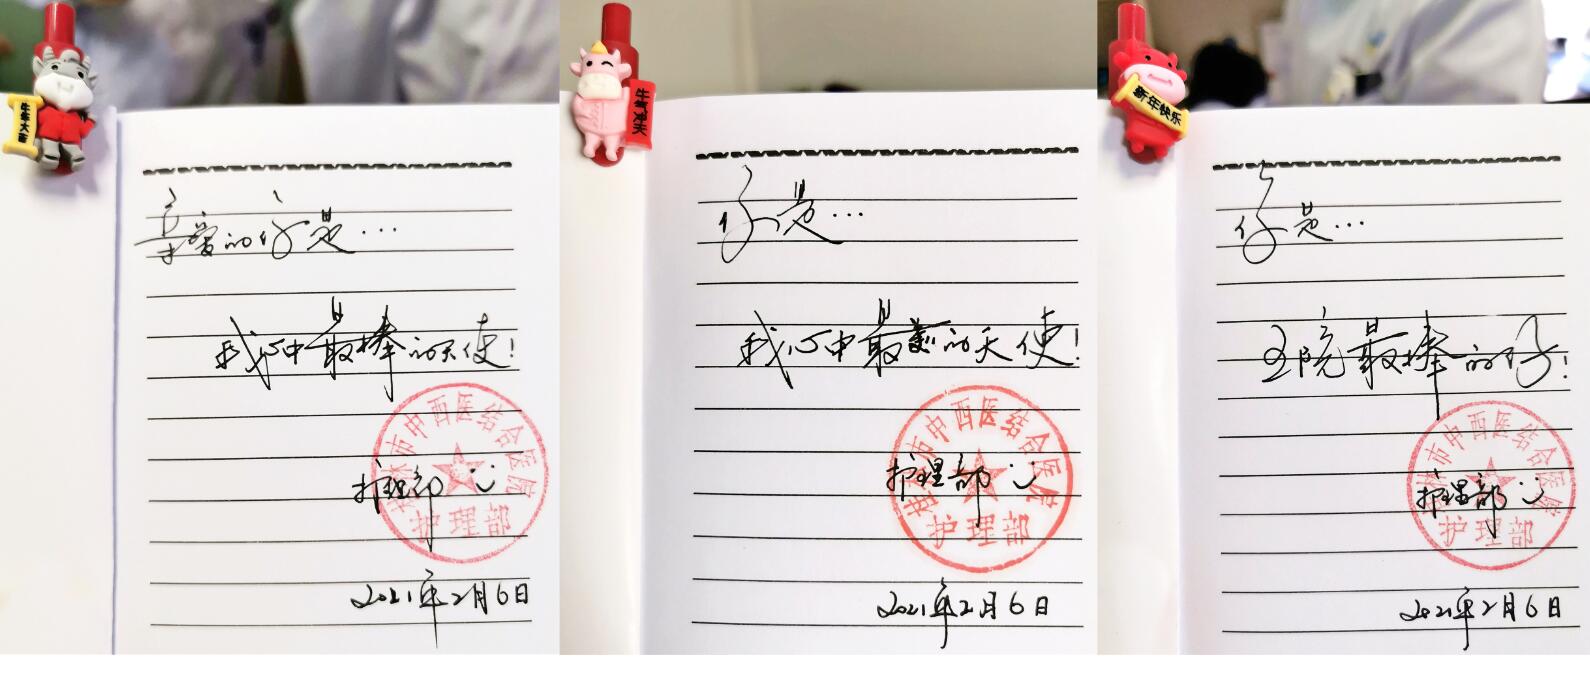 牛年大吉
亲爱的你是…
我心中最棒的天使!
桂林市中西医结合医院
护理部
护理部
2021年2月6日
牛气冲天
你是…
我心中最美的天使!
桂林市中西医结合医院
护理部
护理部
2021年2月6日
新年快乐
你是…
全院最棒的你!
桂林市中西医结合医院
护理部
护理部
2021年2月6日